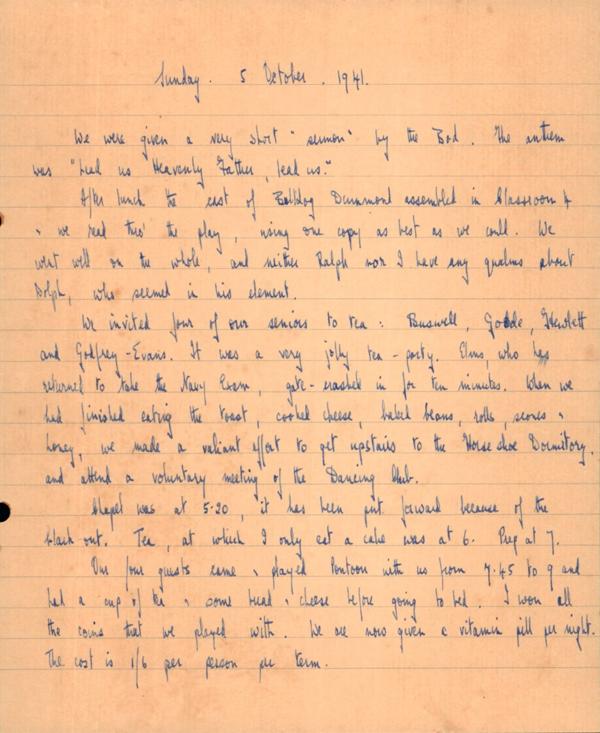 Sunday. 5 October. 1941.
We were given a very short "sermon" by the Bod. The anthem
was "Lead us Heavenly Father, lead us."
After lunch the cast of Bulldog Drummond assembled in Classroom 4
& we read thro' the play, using one copy as best as we could. We
went well on the whole, and neither Ralph nor I have any qualms about
Dolph, who seemed in his element.
We invited four of our seniors to tea: Buswell, Goode, Hewlett
and Godfrey-Evans. It was a very jolly tea-party. Elms, who has
returned to take the Navy Exam, gate-crashed in for ten minutes. When we
had finished eating the toast, cooked cheese, baked beans, rolls, scones &
honey, we made a valiant effort to get upstairs to the Horse shoe Dormitory.
and attend a voluntary meeting of the Dancing Club.
Chapel was at 5.20, it has been put forward because of the
black out. Tea, at which I only eat a cake was at 6. Prep at 7.
Our four guests came & played Pontoon with us from 7.45 to 9 and
had a cup of tea & some bread & cheese before going to bed. I won all
the coins that we played with. We are now given a vitamin pill per night.
The cost is 1/6 per person per term.